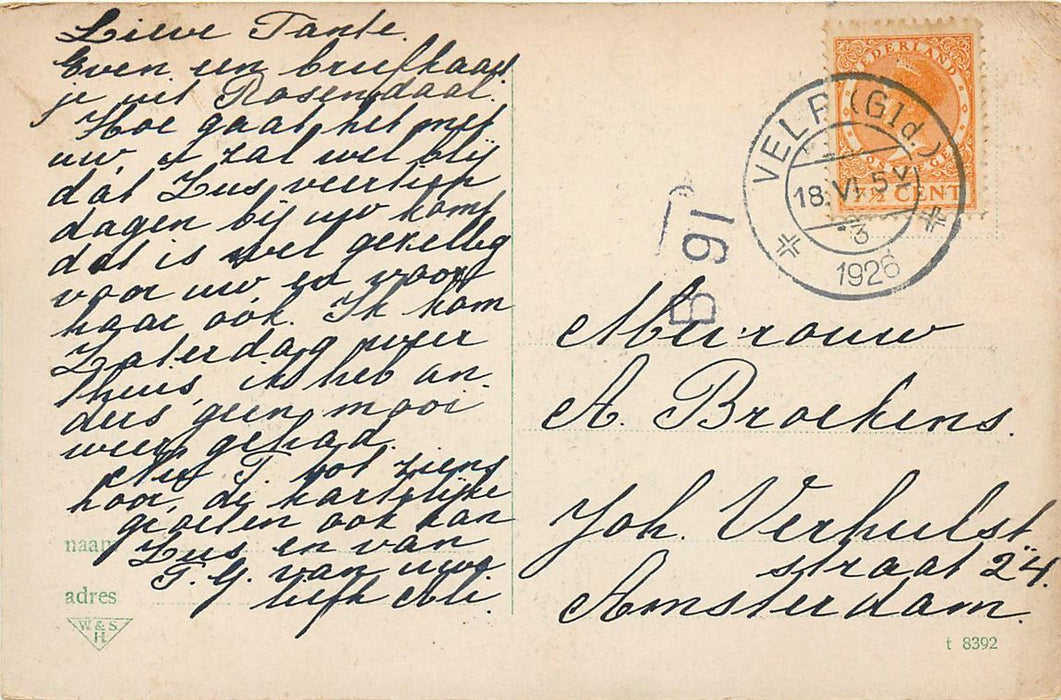 Lieve Tante.
Even een briefkaart
je uit Rosendaal.
Hoe gaat het met
uw, u zal wel blij
dat Zus veertien
dagen bij uw komt
dat is wel gezellig
voor uw en voor
haar oòk. Ik kom
Zaterdag weer
thuis, ik heb an-
ders geen mooi
weer gehad.
Nu T. tot ziens
hoor, de hartelijke
groeten ook aan
Zus en van
T. G. van uwe
liefh
naam
adres
W. & S.
H
NEDERLAND
7½ CENT
VELP (Gld.)
18.VI.5
3
1926
B 91
Mevrouw
A. Broekens.
Joh. Verhulst
straat 24.
Amsterdam.
t 8392